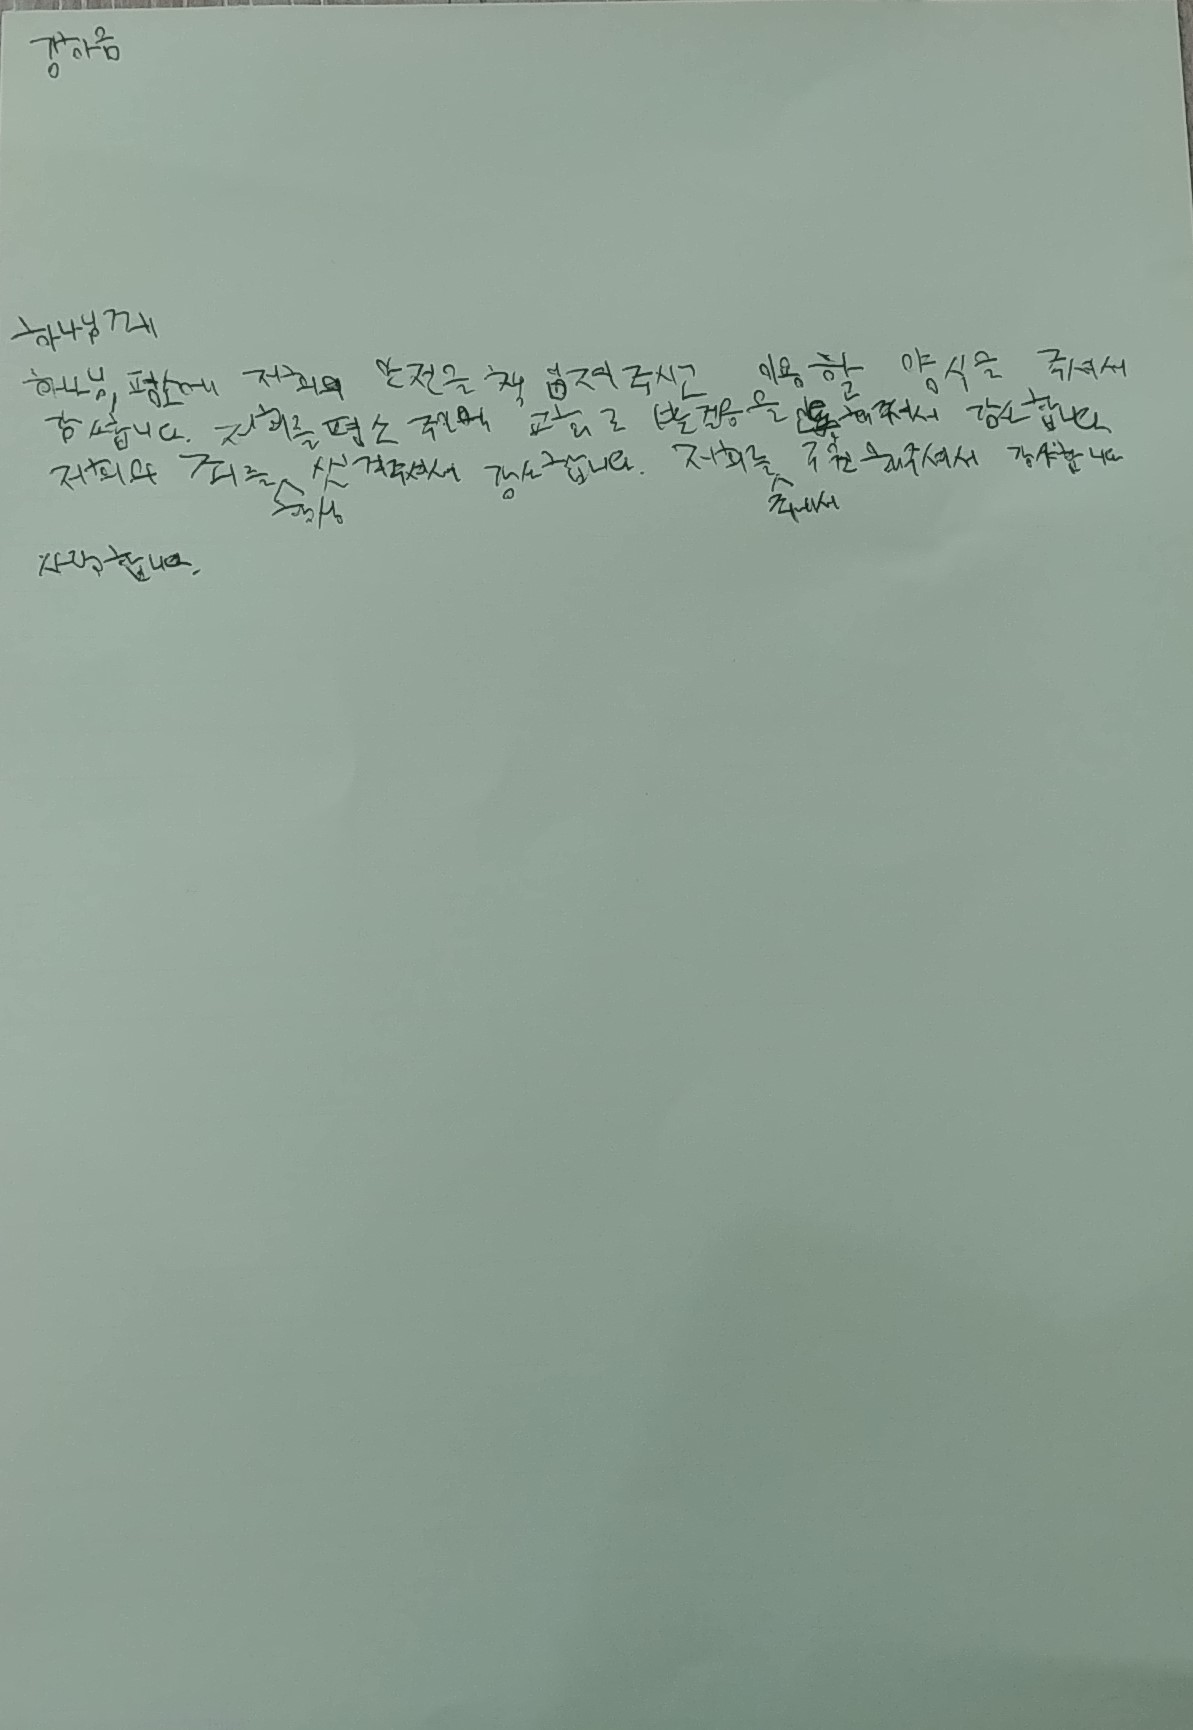 강하음
하나님께
하나님, 평소에 저희의 안전을 책임져주시고 이용할 양식을 주셔서
감사합니다. 저희를 평소 주일에 교회로 발걸음을 해주셔서 감사합니다
저희의 죄를 항상 씻겨주셔서 감사합니다. 저희를 주께서 구원해주셔서 감사합니다
사랑합니다.